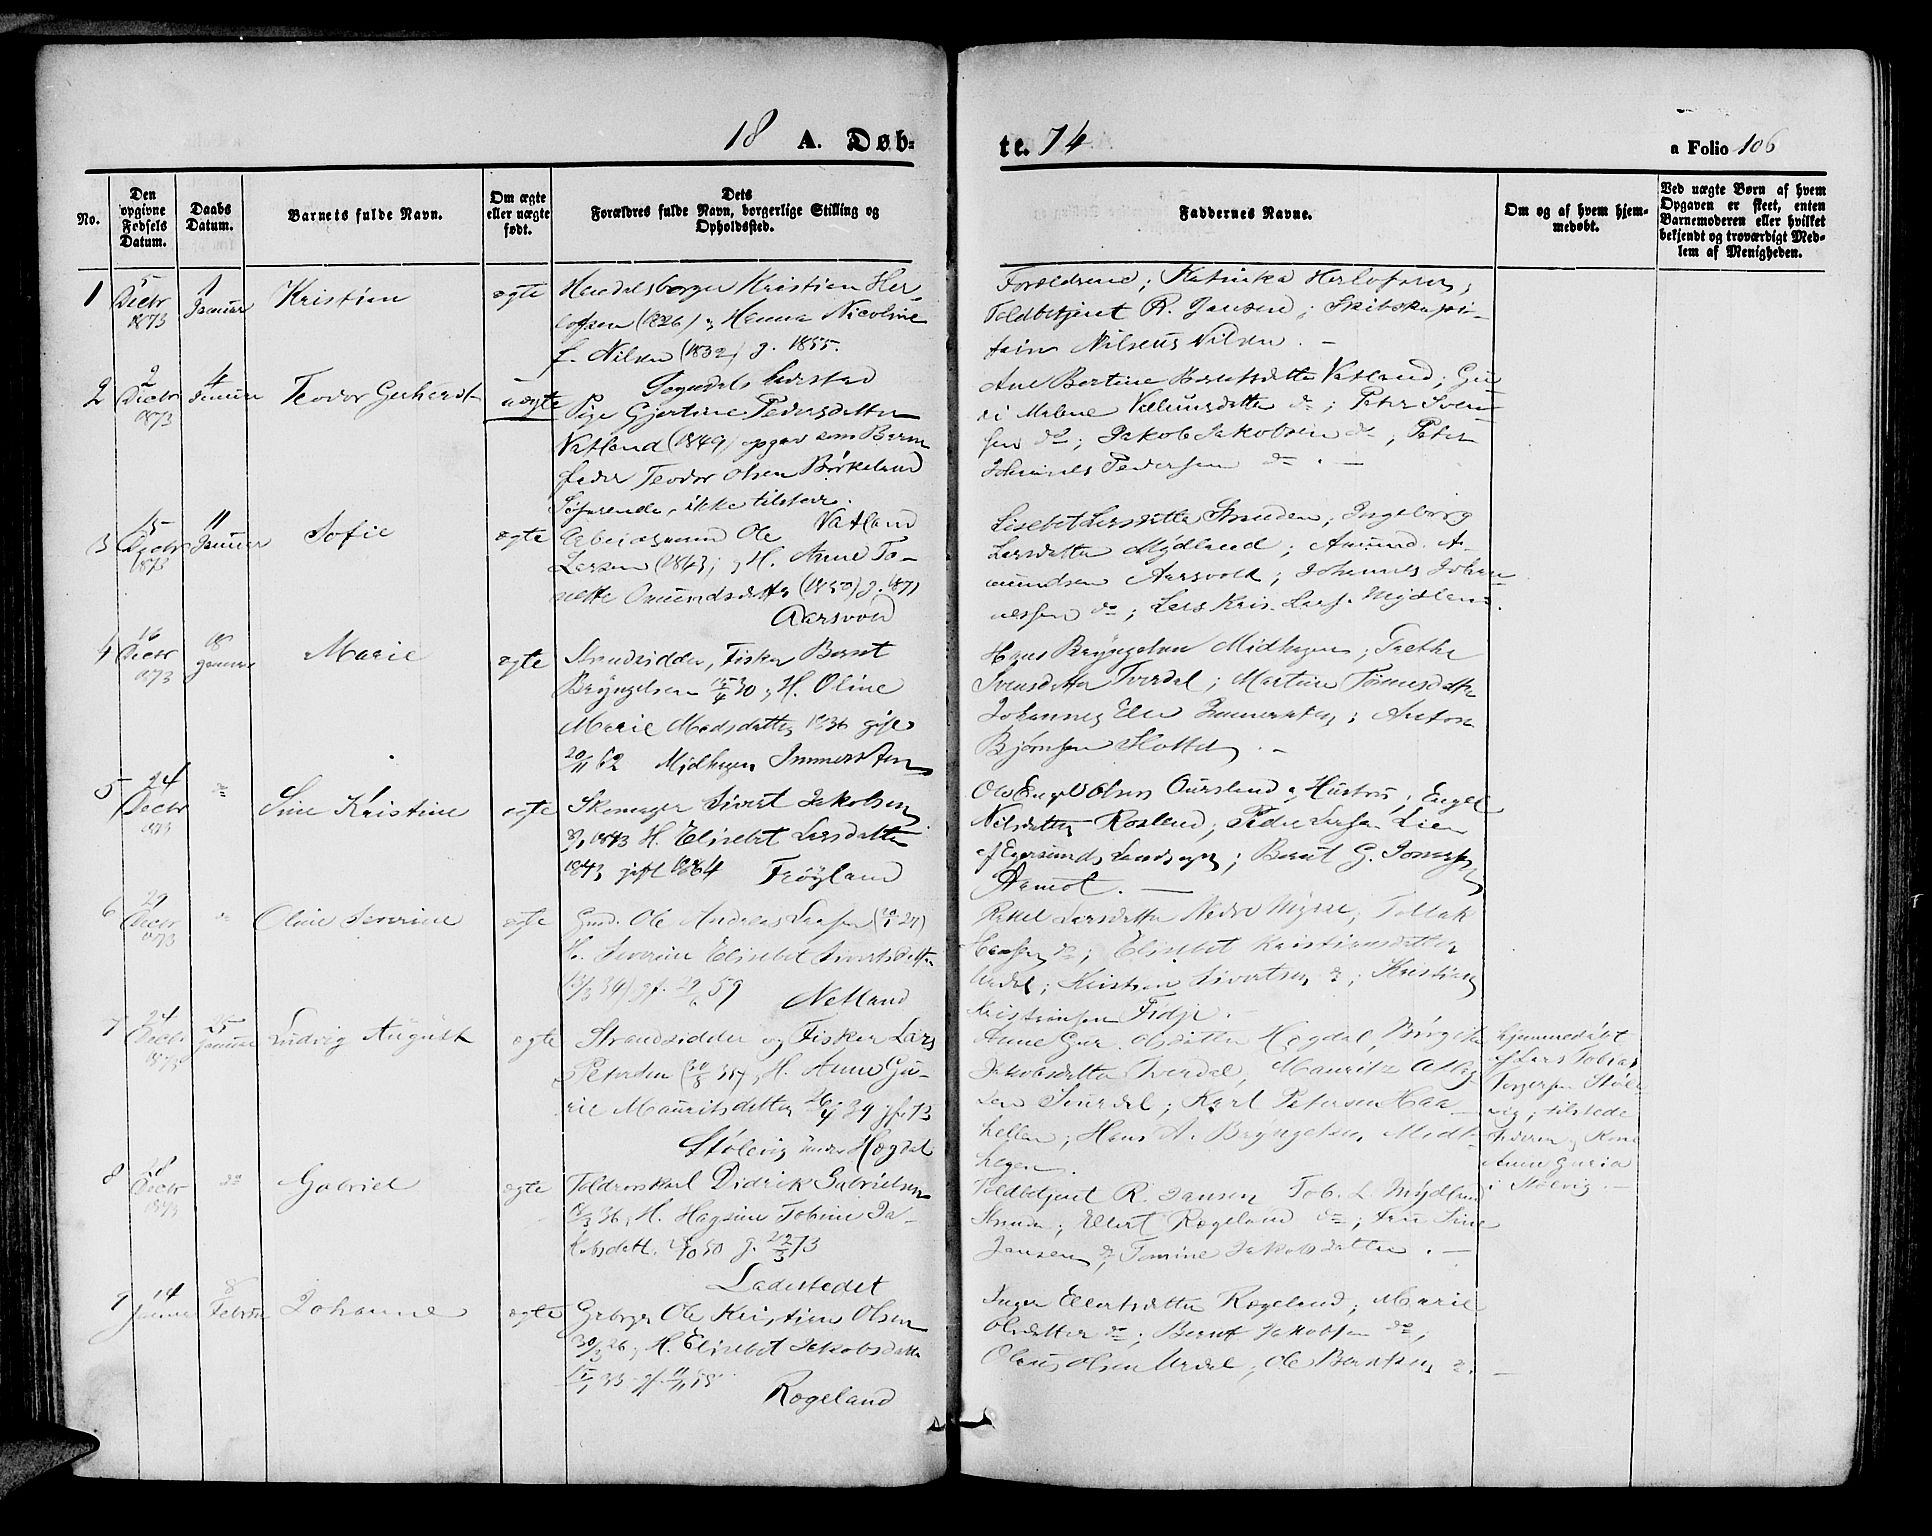 18 A. Døb-
te. 74
a Folio 106
No.
Den opgivne Fødsels Datum.
Daabs Datum.
Barnets fulde Navn.
Om ægte eller uægte født.
Dets Forældres fulde Navn, borgerlige Stilling og Opholdssted.
Faddernes Navne.
Om og af hvem hjemmedøbt.
Ved uægte Børn af hvem Opgaven er skeet, enten Barnemoderen eller hvilket bekjendt og troværdigt Medlem af Menigheden.
1
5 Decbr 1873
1 Januar
Kristian
ægte
Handelsborger Kristian Her-
lofsen (1826) og Hanna Nicoline
f. Nilsen (1832) g. 1855.
Sogndals Ladested
Forældrene; Katinka Herlofsen;
Toldbetjent R. Jansen; Skibskapi-
tain Nilseus Nilsen. –
2
2 Decbr 1873
4 Januar
Teodor Gerhardt
uægte
Pige Gjertine Pedersdatter
Vatland (1849) opgav som Barne
fader Teodor Olsen Birkeland
Søfarende, ikke tilstede.
Vatland
Ane Bertine Vatland; Gu-
ri Malene; Peter Sven-
sen do; Jakob Jakobsen do; Peter
Johannes Pedersen do. –
3
15 Decbr 1873
11 Januar
Sofie
ægte
Arbeidsmand Ole
Larsen (1843) og H. Anne To-
nette Omundsdatter (1850) g. 1871
Aarsvold
Lisebet Larsdatter Stranden; Ingeborg
Larsdatter Mydland; Amund A-
mundsen Aarsvold; Johannes Johan-
nessen do; Lars Kris. Lars. Mydland.
4
16 Decbr 1873
18 Januar
Marie
ægte
Strandsidder, Fisker Berent
Bryngelsen 15/4 30 og H. Oline
Marie Madsdatter 1836 gift
20/11 62 Midhagen Immerstein
Hans Bryngelsen Midhagen; Trethe
Svensdatter Tverdal; Martine Tønnesdatter
Johannes Elle Immerstein; Anton
Bjørnsen Slotte. –
5
24 Decbr 1873
do
Sine Kristine
ægte
Skomager Sivert Jakobsen
1843 H. Elisebet Larsdatter
1843 gift 1864 Frøyland
Ole Engel Olsen Oursland og Hustru; Engel
Nilsdatter Rosland; Peder Larsen Lien
af Egersunds Landsogn; Berent G. Jonassen
Aamot. –
6
29 Decbr 1873
do
Oline Severine
ægte
Gmd. Ole Andreas Larsen (27)
H. Severine Elisebet Sivertsdatter
34) gf. 59
Netland
Rakel Larsdatter Nedre Mysse; Tollak
Hansen do; Elisebet Kristiansdatter
Urdal; Kristian Sivertsen do; Kristian
Kristiansen Fidje. –
7
24 Decbr 1873
25 Januar
Ludvig August
ægte
Strandsidder og Fisker Lars
Petersen (30/8 35), H. Anne Gu-
rie Mauritsdatter 26/4 39 gf. 73
Stølevig under Hegdal
Anne Gur. Olsdatter Hegdal, Birgitte
Jakobsdatter Tverdal, Mauritz
Sirdal; Karl Petersen Haa-
hellen; Hans A. Bryngelsen Midt-
hagen.
hjemmedøbt
af Lars Tobias
Torgersen Støle-
vig; tilstede
Faderen og Kone
Anne Guria
i Stølevig. –
8
28 Decbr 1873
do
Gabriel
ægte
Toldroerskarl Didrik Gabrielsen
36, H. Hagsine Tobine Ja-
kobsdatt. 50 g. 22/3 73
Ladestedet
Toldbetjent R. Jansen Tob. L. Mydland
Strand; Ellert Rægeland do; Fru Sine
Jansen do, Tomine Jakobsdatter. –
9
14 Januar
8 Februar
Johanne
ægte
Grbrger Ole Kristian Olsen
30/3 26, H. Elisebet Jakobsdatter
33 gf. 11/11 58
Rægeland
Inger Ellertsdatter Rægeland; Marie
Olsdatter do; Bernt Jakobsen do;
Olaus Olsen Urdal; Ole Berntsen do. –